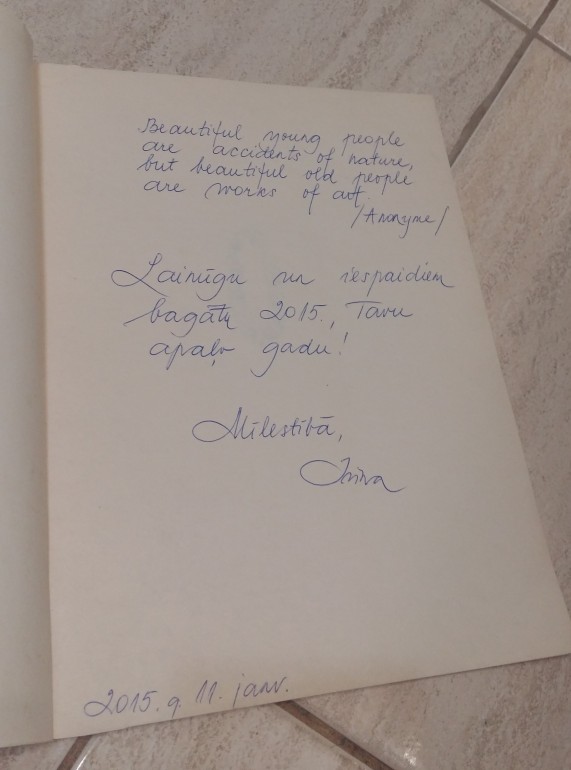 Beautiful young people
are accidents of nature,
but beautiful old people
are works of art.
/Anonyme/
Laimīgu un iespaidiem
bagātu 2015., Tavu
apaļo gadu!
Mīlestībā,
2015. g. 11. janv.